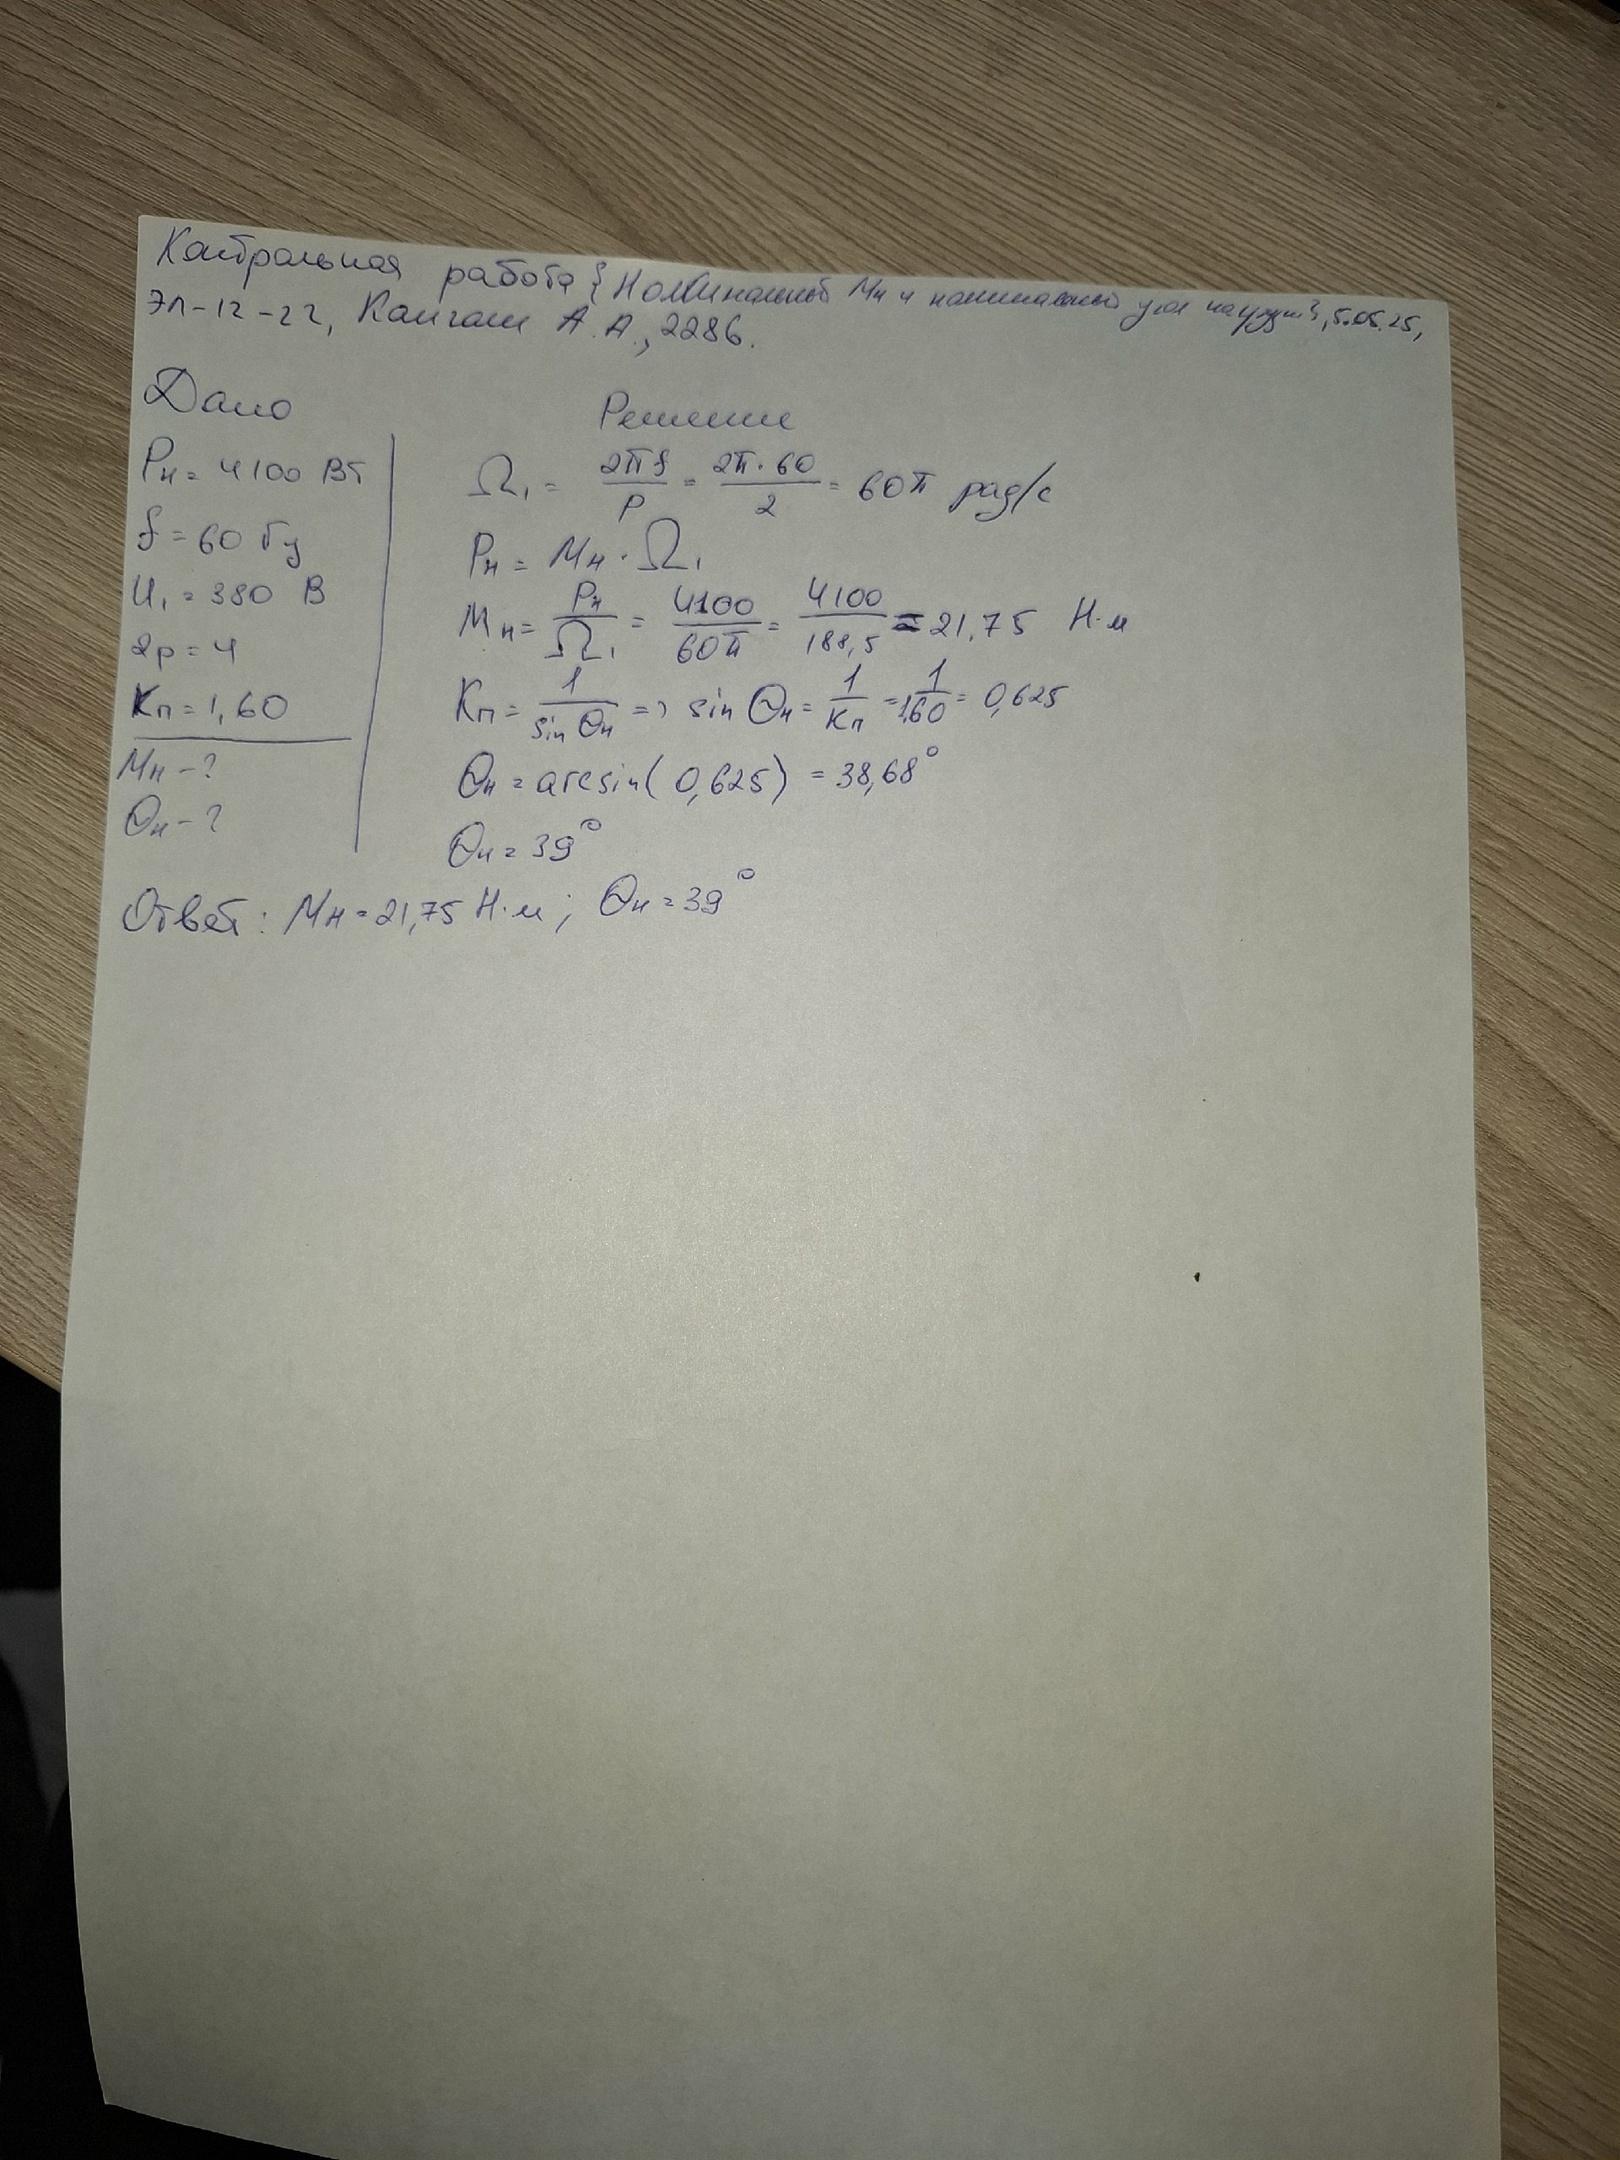 Контрольная работа {Номинальный Мн и номинальный угол нагрузки}, 5.05.25,
ЭЛ-12-22, А.А., 2286.
Дано
Pн = 4100 Вт
f = 60 Гц
U₁ = 380 В
2p = 4
Kп = 1,60
Mн - ?
Θн - ?
Решение
Ω₁ = 2πf/P = 2π·60/2 = 60π рад/с
Pн = Mн · Ω₁
Mн = Pн/Ω₁ = 4100/60π = 4100/188,5 ≈ 21,75 Н·м
Kп = 1/sin Θн => sin Θн = 1/Kп = 1/1,60 = 0,625
Θн = arcsin(0,625) = 38,68°
Θн = 39°
Ответ: Mн = 21,75 Н·м; Θн = 39°